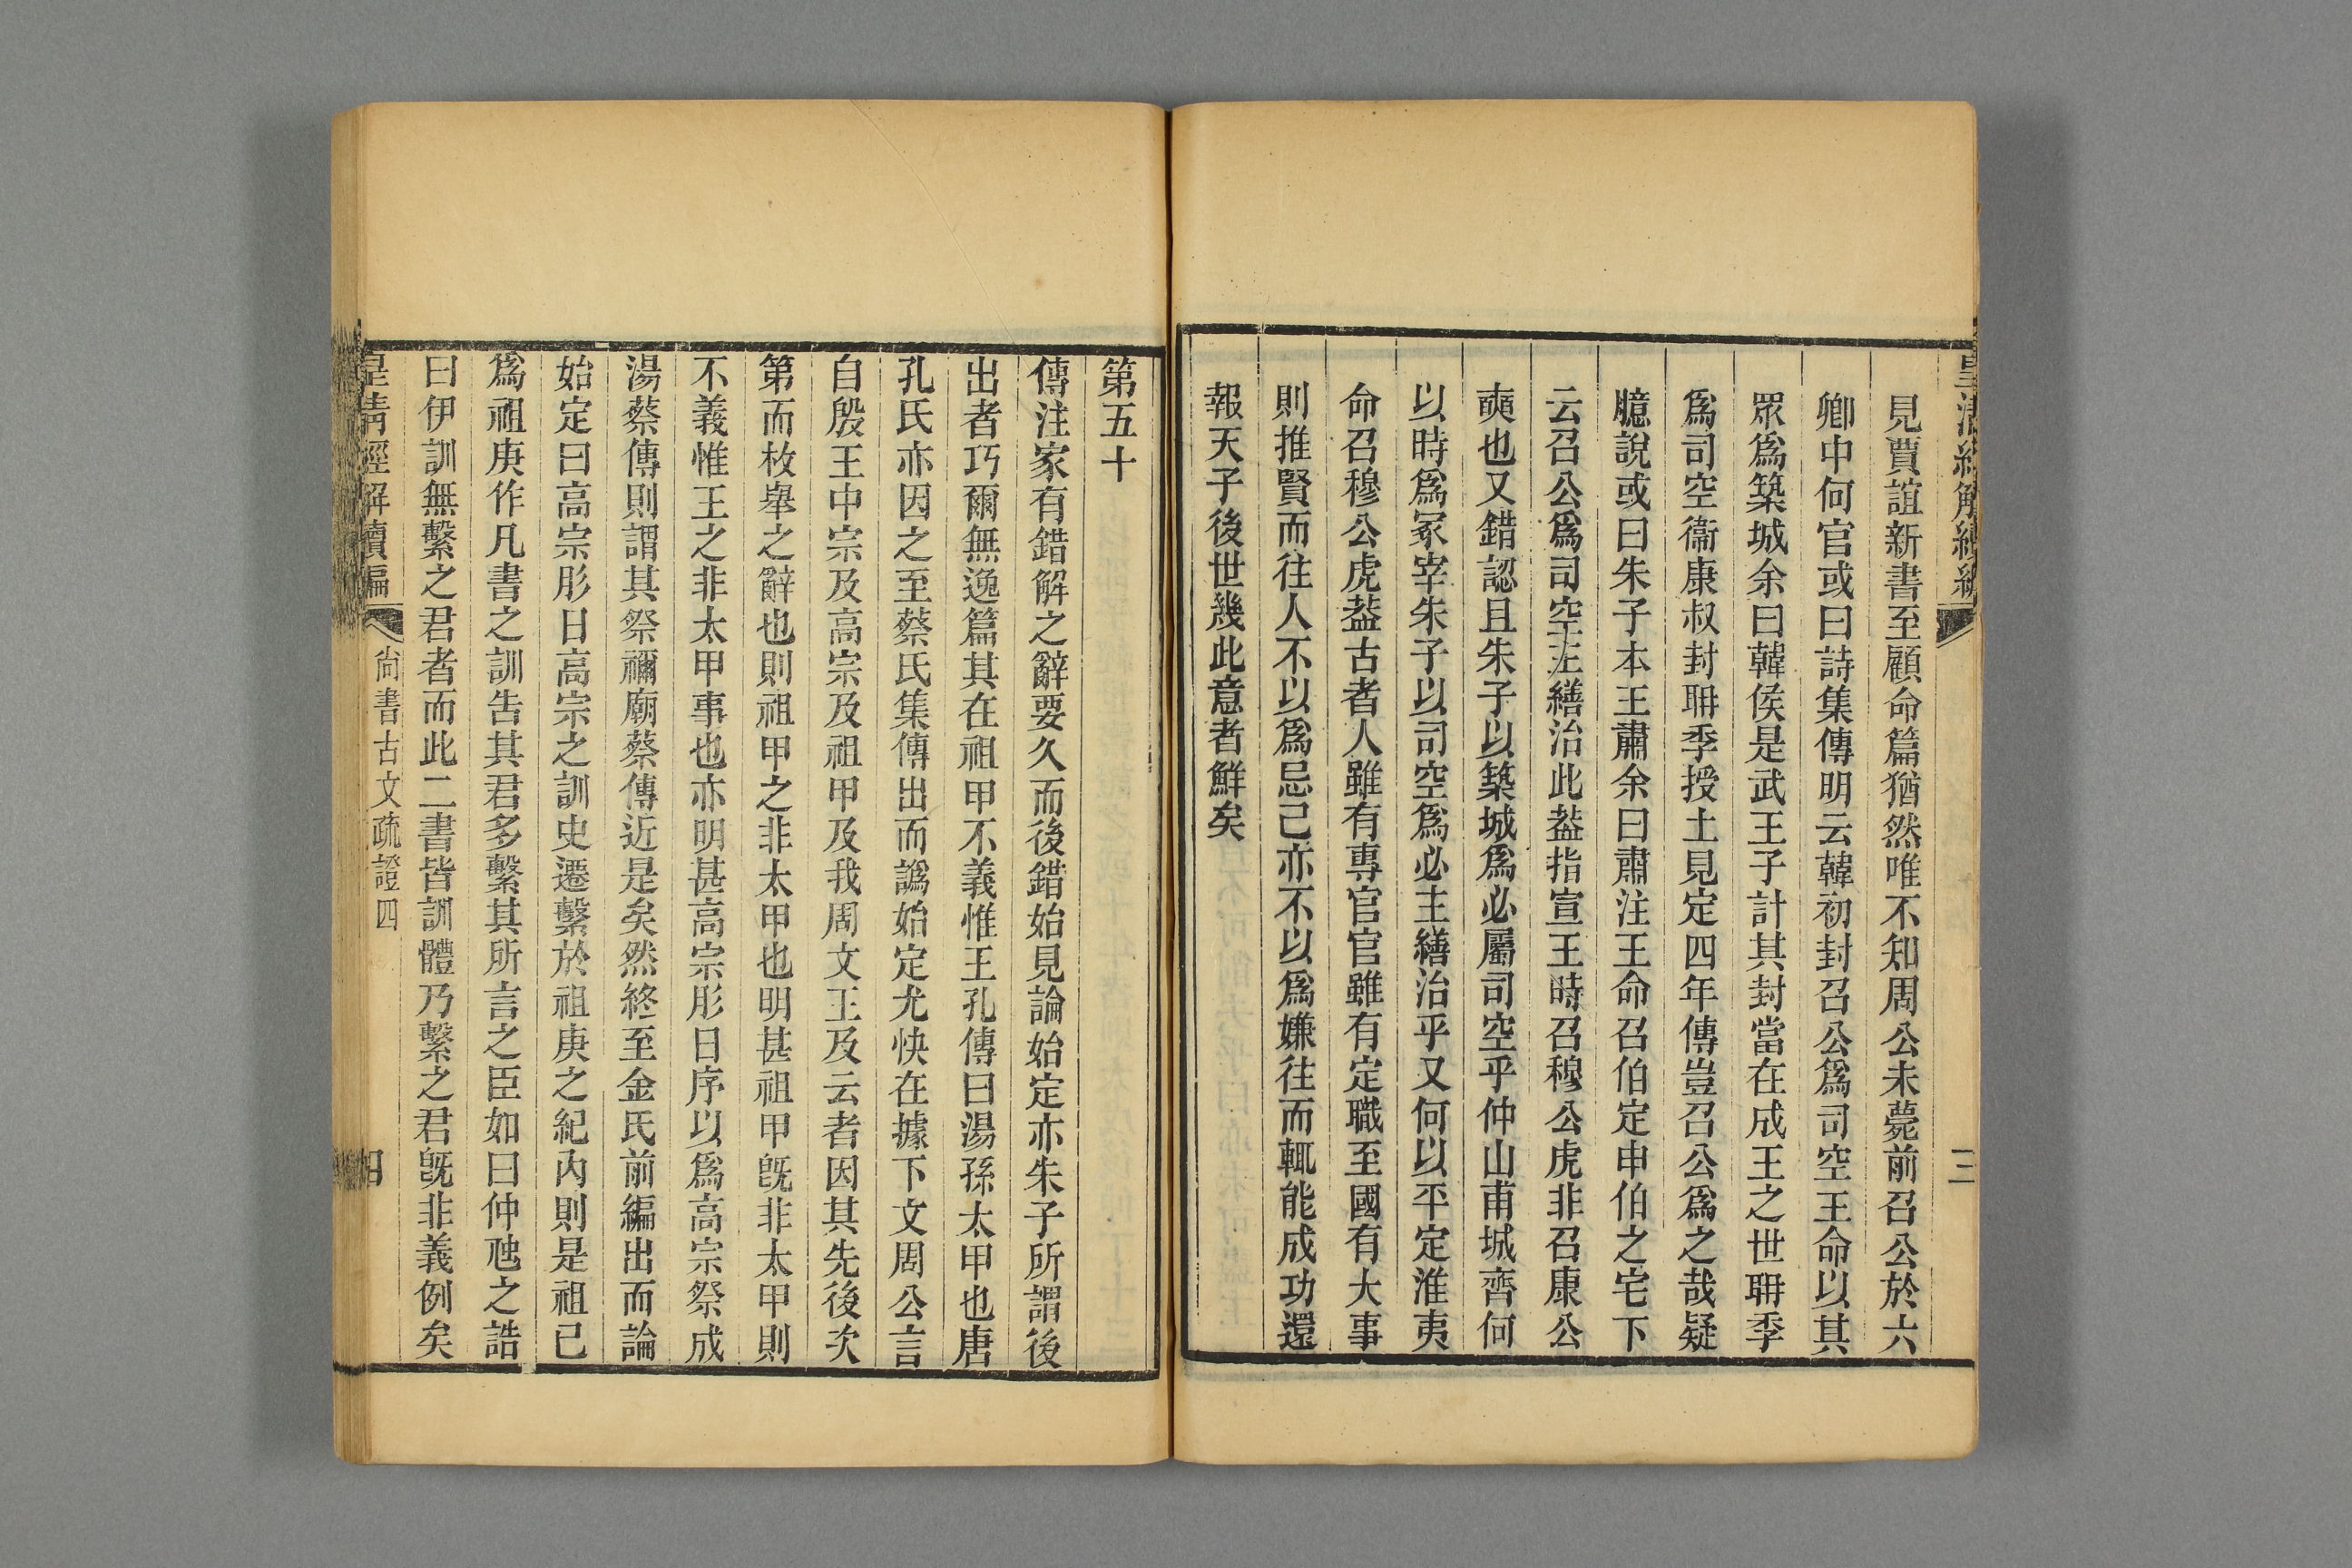 皇清經解續編
三
見賈誼新書至顧命篇猶然唯不知周公未薨前召公於六
卿中何官或曰詩集傳明云韓初封召公爲司空王命以其
眾爲築城余曰韓侯是武王子計其封當在成王之世聃季
爲司空衞康叔封聃季授土見定四年傳豈召公爲之哉疑
臆說或曰朱子本王肅余曰肅注王命召伯定申伯之宅下
云召公爲司空主繕治此葢指宣王時召穆公虎非召康公
奭也又錯認且朱子以築城爲必屬司空乎仲山甫城齊何
以時爲冢宰朱子以司空爲必主繕治乎又何以平定淮夷
命召穆公虎葢古者人雖有專官官雖有定職至國有大事
則推賢而往人不以爲忌己亦不以爲嫌往而輒能成功還
報天子後世幾此意者鮮矣
第五十
傳注家有錯解之辭要久而後錯始見論始定亦朱子所謂後
出者巧爾無逸篇其在祖甲不義惟王孔傳曰湯孫太甲也唐
孔氏亦因之至蔡氏集傳出而譌始定尤快在據下文周公言
自殷王中宗及高宗及祖甲及我周文王及云者因其先後次
第而枚舉之辭也則祖甲之非太甲也明甚祖甲旣非太甲則
不義惟王之非太甲事也亦明甚高宗肜日序以爲高宗祭成
湯蔡傳則謂其祭禰廟蔡傳近是矣然終至金氏前編出而論
始定曰高宗肜日高宗之訓史遷繫於祖庚之紀內則是祖己
爲祖庚作凡書之訓告其君多繫其所言之臣如曰仲虺之誥
曰伊訓無繫之君者而此二書皆訓體乃繫之君旣非義例矣
皇清經解續編
尙書古文疏證四
四